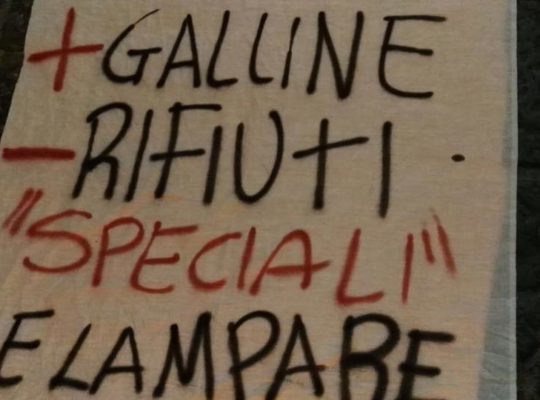 + GALLINE
- RIFIUTI .
"SPECIALI"
E LAMPARE